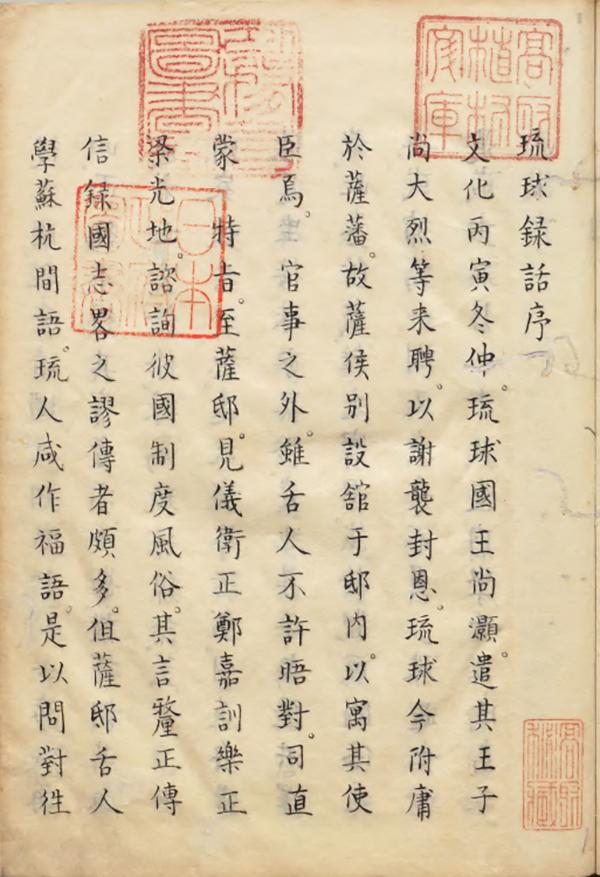 琉球録話序
文化丙寅冬仲。琉球國王尚灝。遣其王子
尚大烈等来聘。以謝襲封恩。琉球今附庸
於薩藩。故薩侯別設舘于邸内。以寓其使
臣焉。官事之外。雖舌人不許晤對。司直
蒙 特旨。至薩邸。見儀衛正鄭嘉訓樂正
梁光地。諮詢彼國制度風俗。其言釐正傳
信録國志畧之謬傳者頗多。但薩邸舌人
學蘇杭間語。琉人咸作福語。是以問對徃
日本